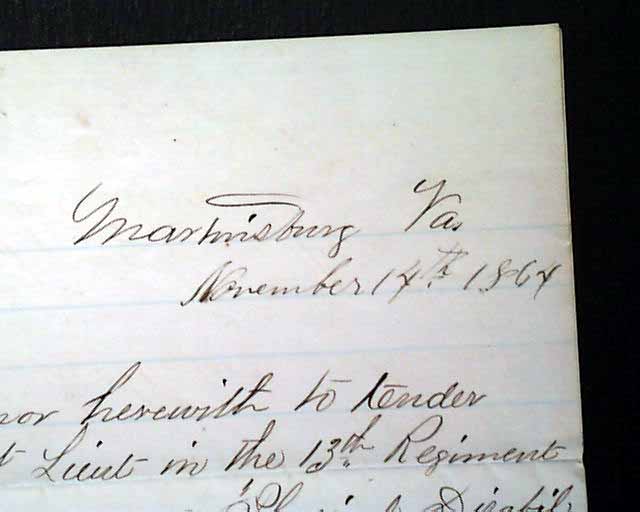 Martinsburg Va.
November 14th 1864
nor herewith to tender
t Lieut in the 13th Regiment